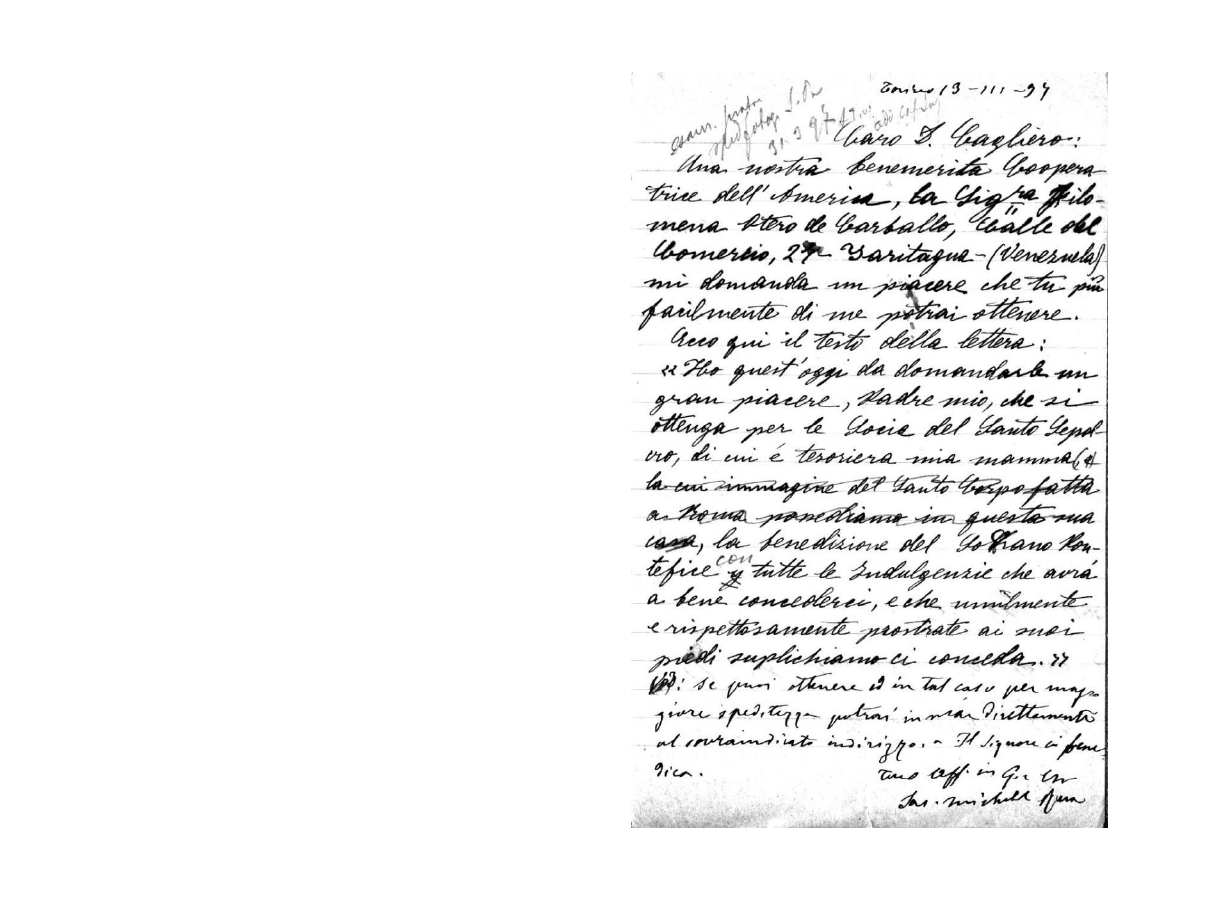 Torino 13-III-97
31.3 97
Caro D. Cagliero:
Una nostra benemerita Coopera
trice dell'America, la Sigra Filo-
mena Otero de Carballo, Calle del
Comercio, 27 Yaritagua-(Venezuela)
mi domanda un piacere che tu più
facilmente di me potrai ottenere.
Ecco qui il testo della lettera:
«Ho quest'oggi da domandarle un
gran piacere, Padre mio, che si
ottenga per le Socie del Santo Sepol-
cro, di cui é tesoriera mia mamma
la cui immagine del Santo Corpo fatta
a Roma possediamo in questa sua
casa, la benedizione del Sovrano Pon-
tefice con y tutte le Indulgenzie che avrá
a bene concederci, e che umilmente
e rispettosamente prostrate ai suoi
piedi suplichiamo ci conceda.»
Vedi se puoi ottenere ed in tal caso per mag-
giore speditezza potrai inviar direttamente
al sovraindicato indirizzo. - Il Signore ci bene
dica.
Tuo aff. in G. e M.
Sac. Michele Rua